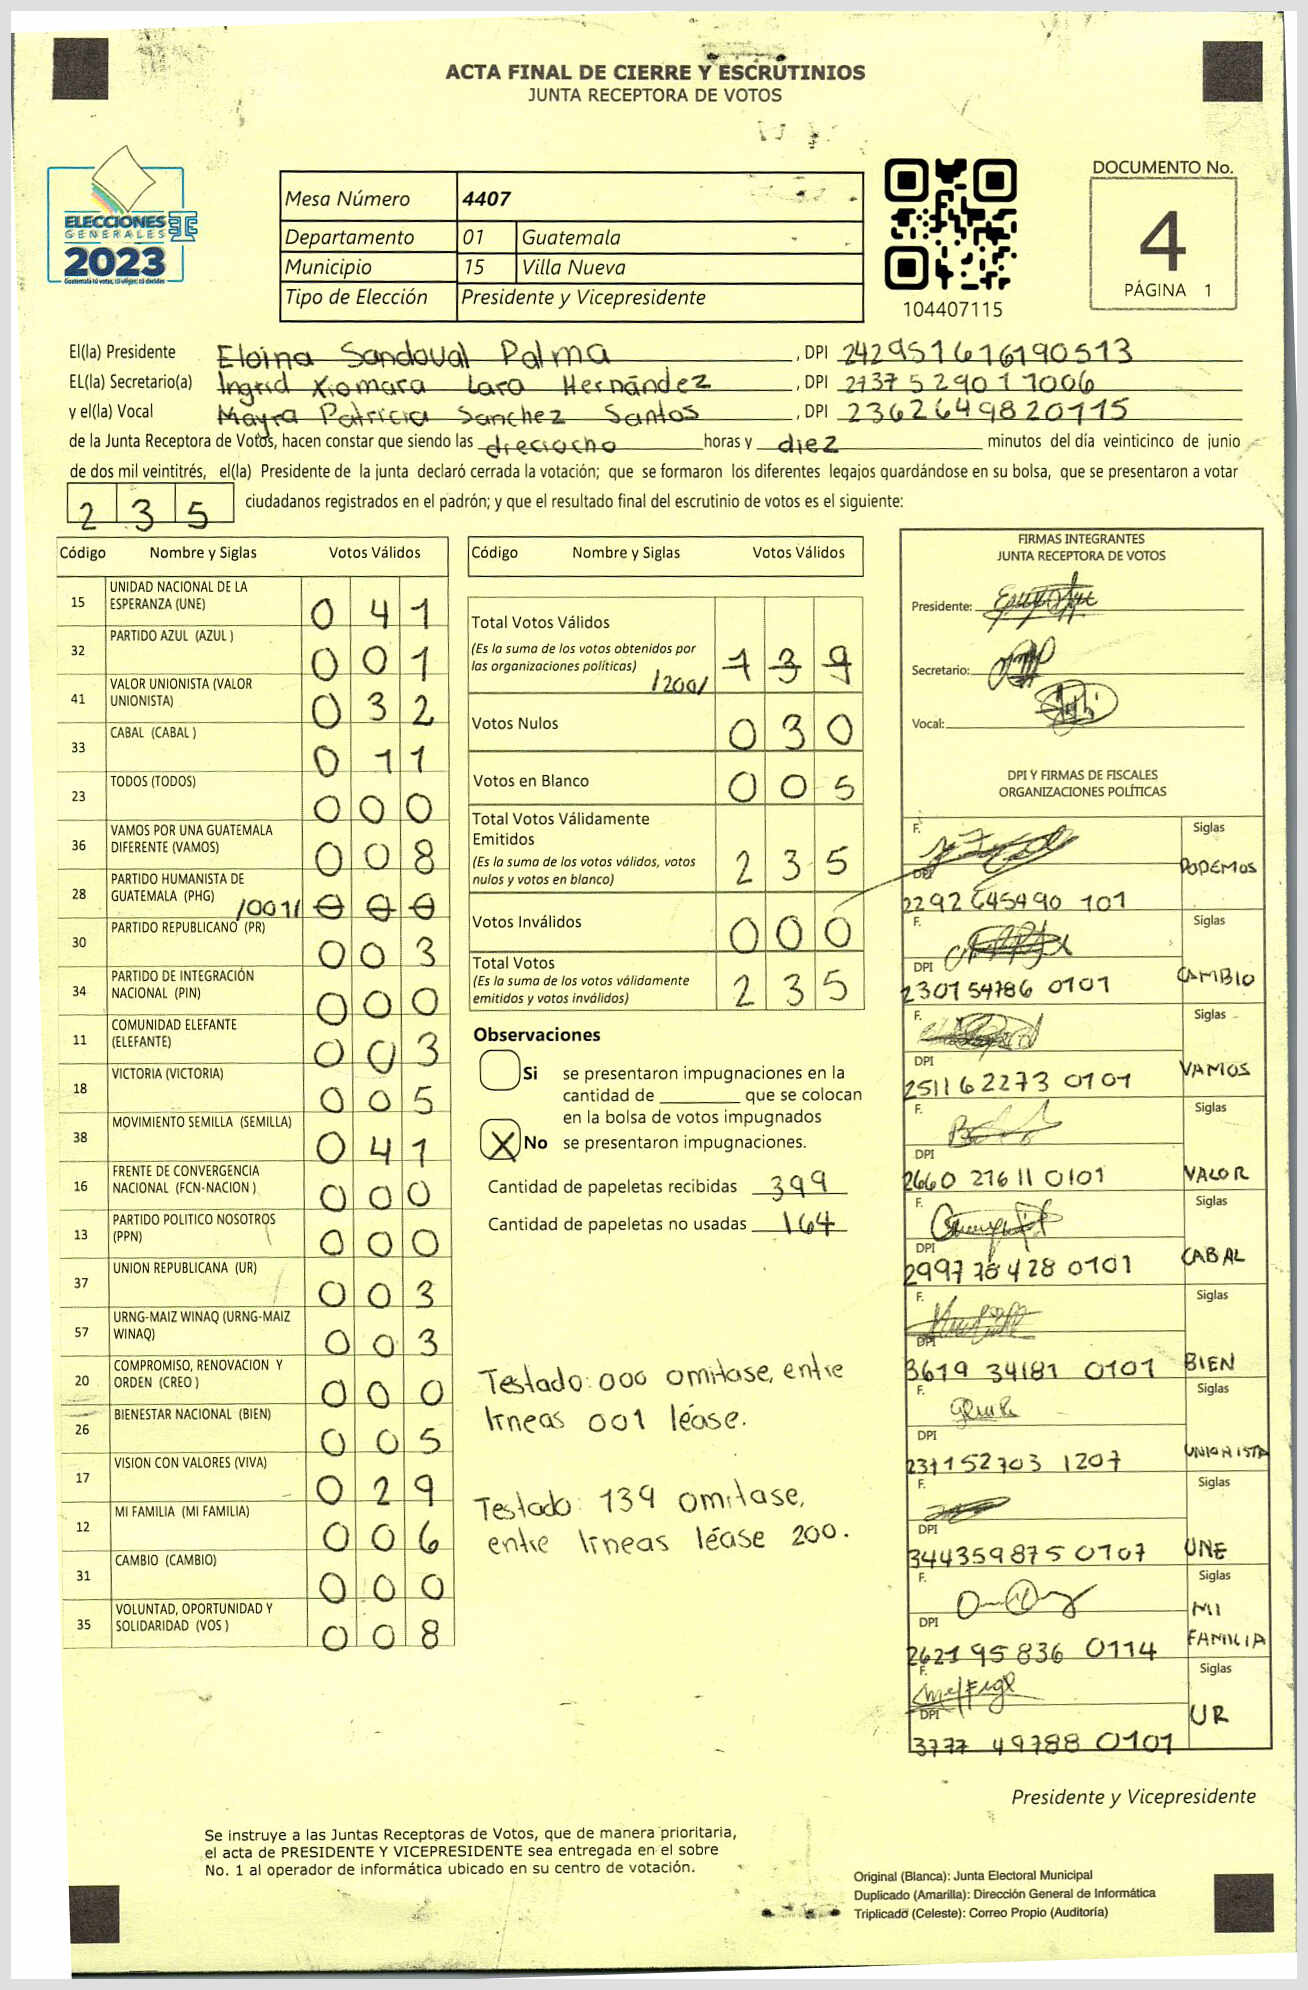 ACTA FINAL DE CIERRE Y ESCRUTINIOS
JUNTA RECEPTORA DE VOTOS
ELECCIONES
GENERALES
2023
Guatemala tú votas, tú eliges, tú decides
Mesa Número 4407
Departamento 01 Guatemala
Municipio 15 Villa Nueva
Tipo de Elección Presidente y Vicepresidente
104407115
DOCUMENTO No.
4
PÁGINA 1
El(la) Presidente Eloina Sandoval Palma , DPI 242951616190513
EL(la) Secretario(a) Ingrid Xiomara Lara Hernández , DPI 2737529011006
y el(la) Vocal Mayra Patricia Sanchez Santos , DPI 2362649820115
de la Junta Receptora de Votos, hacen constar que siendo las dieciocho horas y diez minutos del día veinticinco de junio
de dos mil veintitrés, el(la) Presidente de la junta declaró cerrada la votación; que se formaron los diferentes legajos quardándose en su bolsa, que se presentaron a votar
2 3 5 ciudadanos registrados en el padrón; y que el resultado final del escrutinio de votos es el siguiente:
Código Nombre y Siglas Votos Válidos
15 UNIDAD NACIONAL DE LA ESPERANZA (UNE) 0 4 1
32 PARTIDO AZUL (AZUL ) 0 0 1
41 VALOR UNIONISTA (VALOR UNIONISTA) 0 3 2
33 CABAL (CABAL ) 0 1 1
23 TODOS (TODOS) 0 0 0
36 VAMOS POR UNA GUATEMALA DIFERENTE (VAMOS) 0 0 8
28 PARTIDO HUMANISTA DE GUATEMALA (PHG) /001/ 0 0 0
30 PARTIDO REPUBLICANO (PR) 0 0 3
34 PARTIDO DE INTEGRACIÓN NACIONAL (PIN) 0 0 0
11 COMUNIDAD ELEFANTE (ELEFANTE) 0 0 3
18 VICTORIA (VICTORIA) 0 0 5
38 MOVIMIENTO SEMILLA (SEMILLA) 0 4 1
16 FRENTE DE CONVERGENCIA NACIONAL (FCN-NACION ) 0 0 0
13 PARTIDO POLITICO NOSOTROS (PPN) 0 0 0
37 UNION REPUBLICANA (UR) 0 0 3
57 URNG-MAIZ WINAQ (URNG-MAIZ WINAQ) 0 0 3
20 COMPROMISO, RENOVACION Y ORDEN (CREO ) 0 0 0
26 BIENESTAR NACIONAL (BIEN) 0 0 5
17 VISION CON VALORES (VIVA) 0 2 9
12 MI FAMILIA (MI FAMILIA) 0 0 6
31 CAMBIO (CAMBIO) 0 0 0
35 VOLUNTAD, OPORTUNIDAD Y SOLIDARIDAD (VOS ) 0 0 8
Código Nombre y Siglas Votos Válidos
Total Votos Válidos
(Es la suma de los votos obtenidos por
las organizaciones políticas) /200/ 1 3 9
Votos Nulos 0 3 0
Votos en Blanco 0 0 5
Total Votos Válidamente
Emitidos
(Es la suma de los votos válidos, votos
nulos y votos en blanco) 2 3 5
Votos Inválidos 0 0 0
Total Votos
(Es la suma de los votos válidamente
emitidos y votos inválidos) 2 3 5
Observaciones
Si se presentaron impugnaciones en la
cantidad de ________ que se colocan
en la bolsa de votos impugnados
X No se presentaron impugnaciones.
Cantidad de papeletas recibidas 399
Cantidad de papeletas no usadas 164
Testado: 000 omitase, entre
lineas 001 léase.
Testado: 139 omitase,
entre lineas léase 200.
FIRMAS INTEGRANTES
JUNTA RECEPTORA DE VOTOS
Presidente:
Secretario:
Vocal:
DPI Y FIRMAS DE FISCALES
ORGANIZACIONES POLÍTICAS
F. Siglas
DPI PODEMOS
2292645490 101
F. Siglas
DPI CAMBIO
230154786 0101
F. Siglas
DPI VAMOS
251162273 0101
F. Siglas
DPI VALOR
2660 21611 0101
F. Siglas
DPI CABAL
2997784280101
F. Siglas
DPI BIEN
3619 34181 0101
F. Siglas
DPI UNIONISTA
231152703 1207
F. Siglas
DPI UNE
344359875 0107
F. Siglas
DPI MI FAMILIA
262195836 0114
F. Siglas
DPI UR
3777 49788 0101
Presidente y Vicepresidente
Se instruye a las Juntas Receptoras de Votos, que de manera prioritaria,
el acta de PRESIDENTE Y VICEPRESIDENTE sea entregada en el sobre
No. 1 al operador de informática ubicado en su centro de votación.
Original (Blanca): Junta Electoral Municipal
Duplicado (Amarilla): Dirección General de Informática
Triplicado (Celeste): Correo Propio (Auditoría)